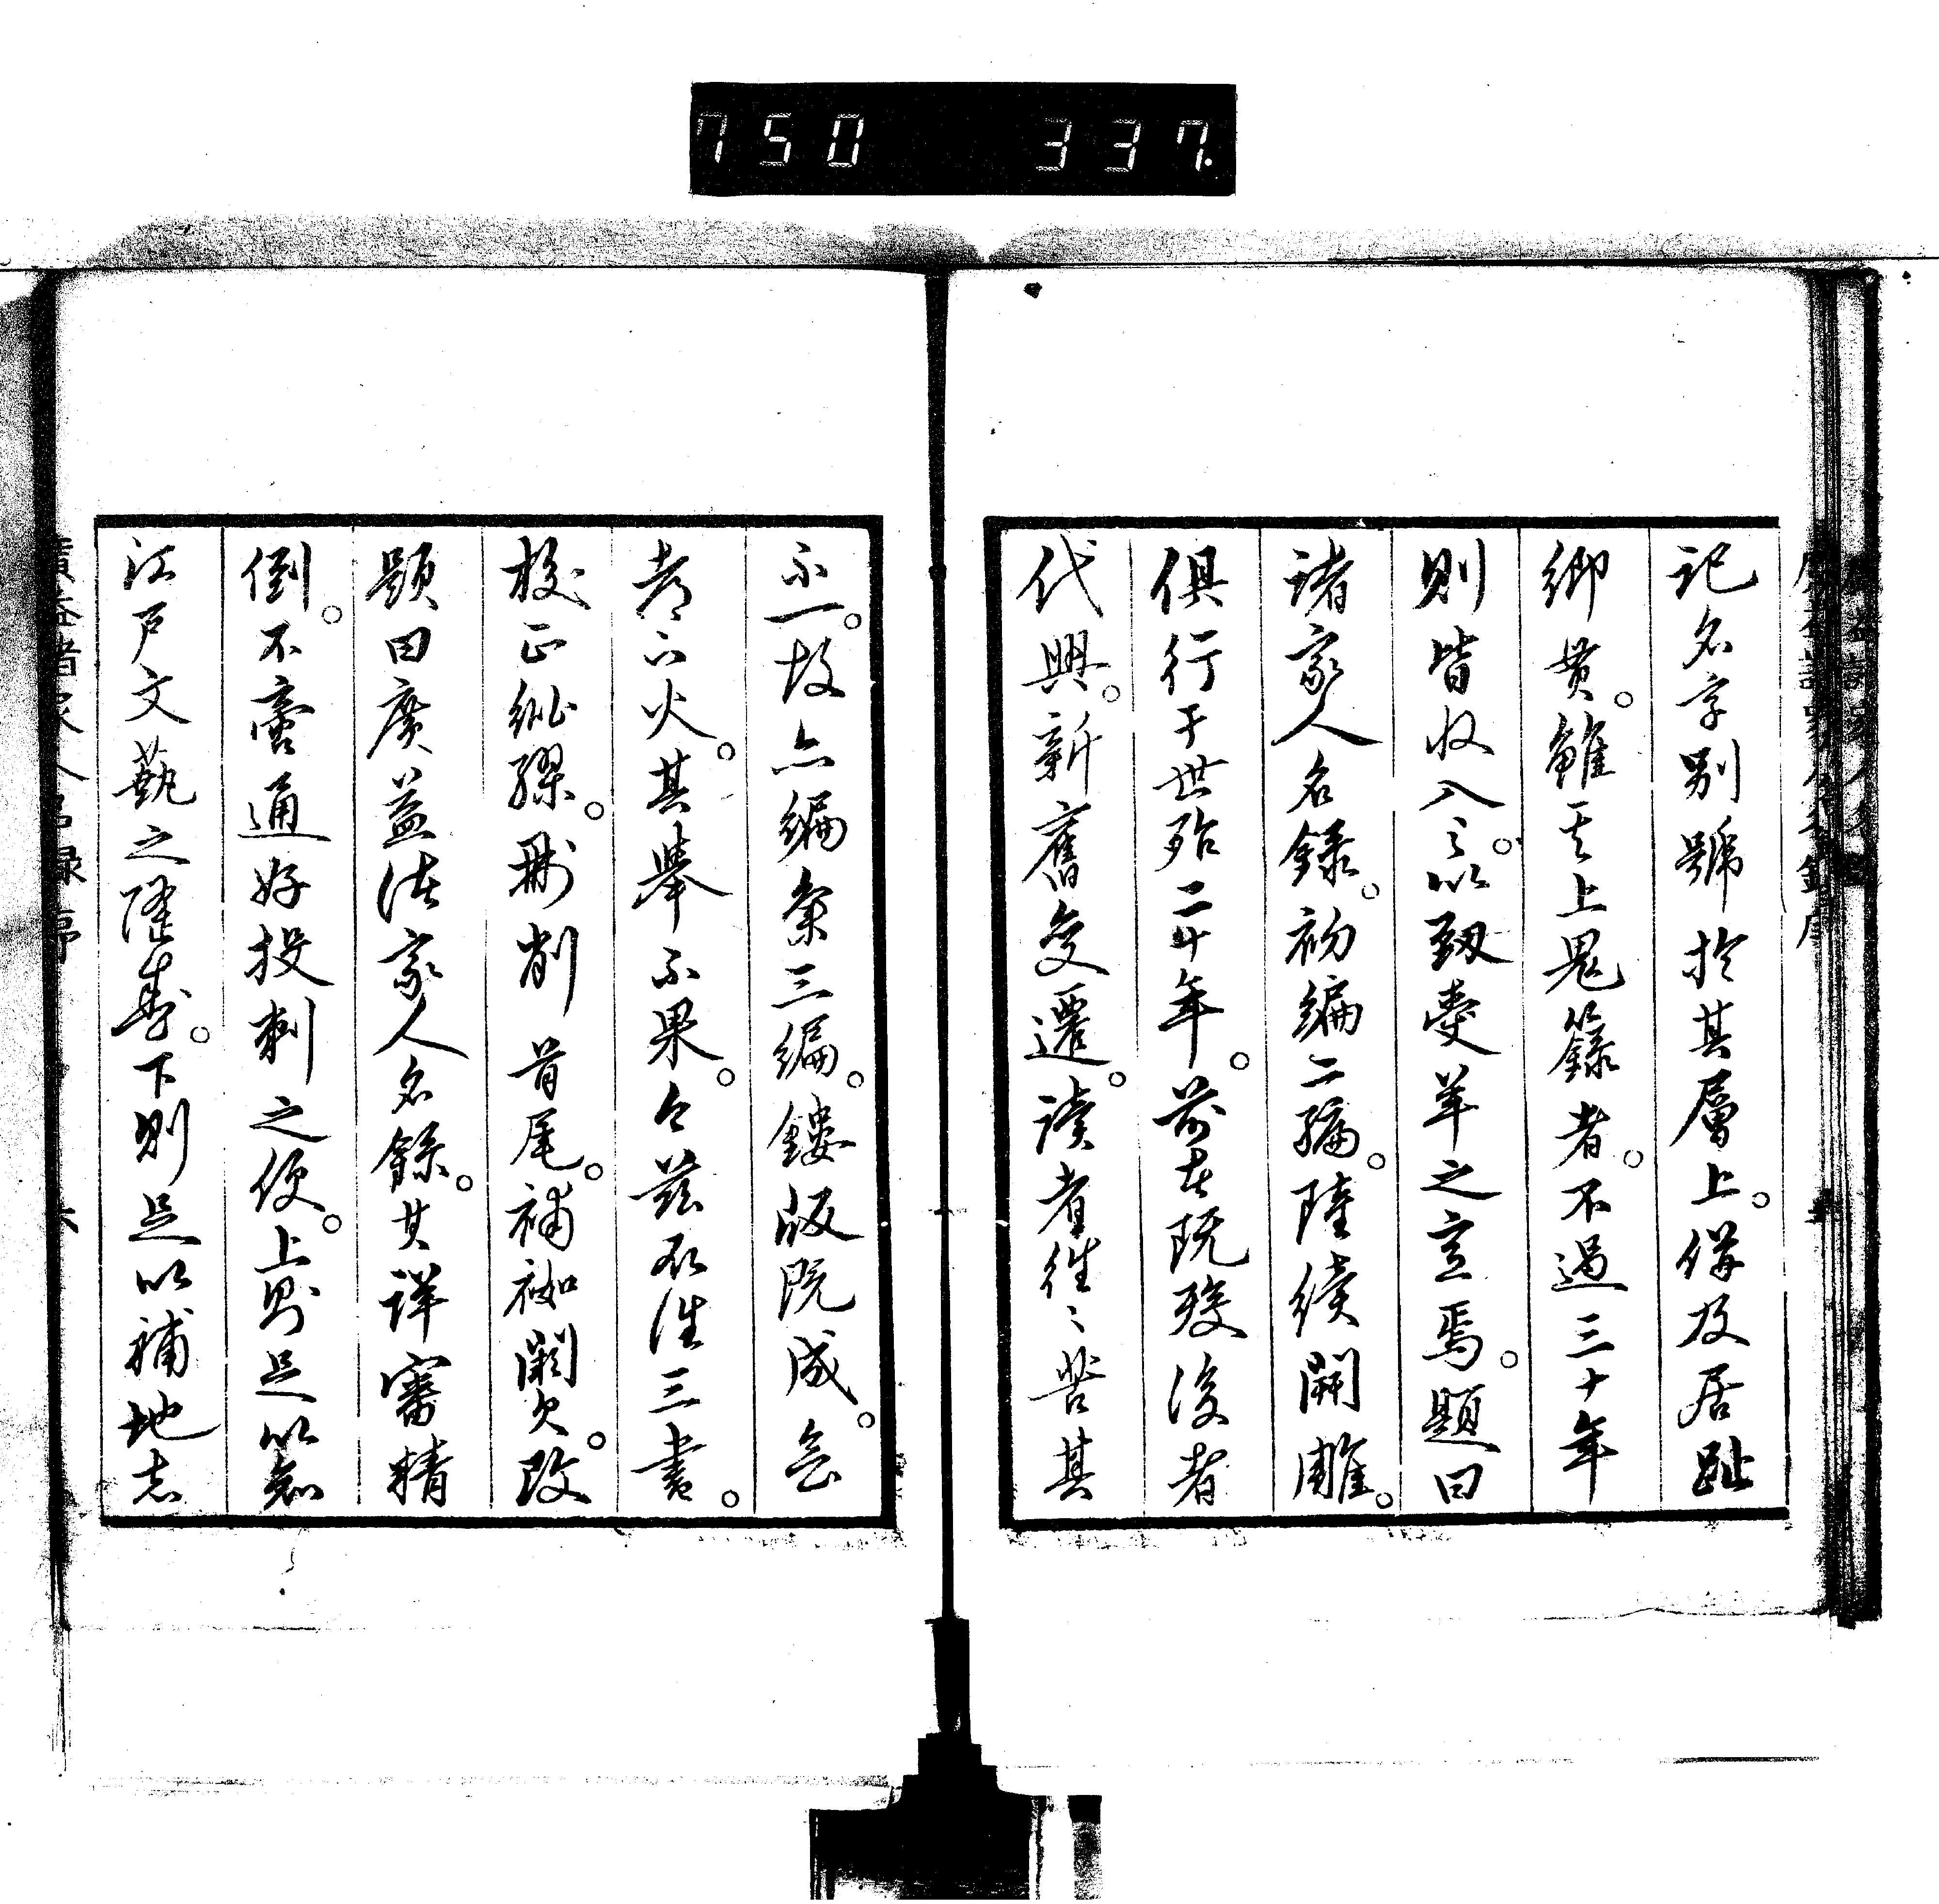 750 337.
記名字別號於其層上。備及居趾
鄉貫。雖其上鬼籙者。不過三十年
則皆收入之。以致愛羊之意焉。題曰
諸家人名錄。初編二編。陸續開雕。
俱行于世殆二十年。前者既歿後者
代興。新舊變遷。讀者往〻苦其
不一。故亦編纂三編。鏤版既成。
耗亡火。其舉不果。今茲取從三書。
校正紕繆。刪削首尾。補裰闕欠。改
題曰廣益諸家人名錄。其詳審精
倒。不啻通好投刺之便。上則足以知
江戶文藝之隆盛。下則足以補地志
廣益諸家人名錄序
六